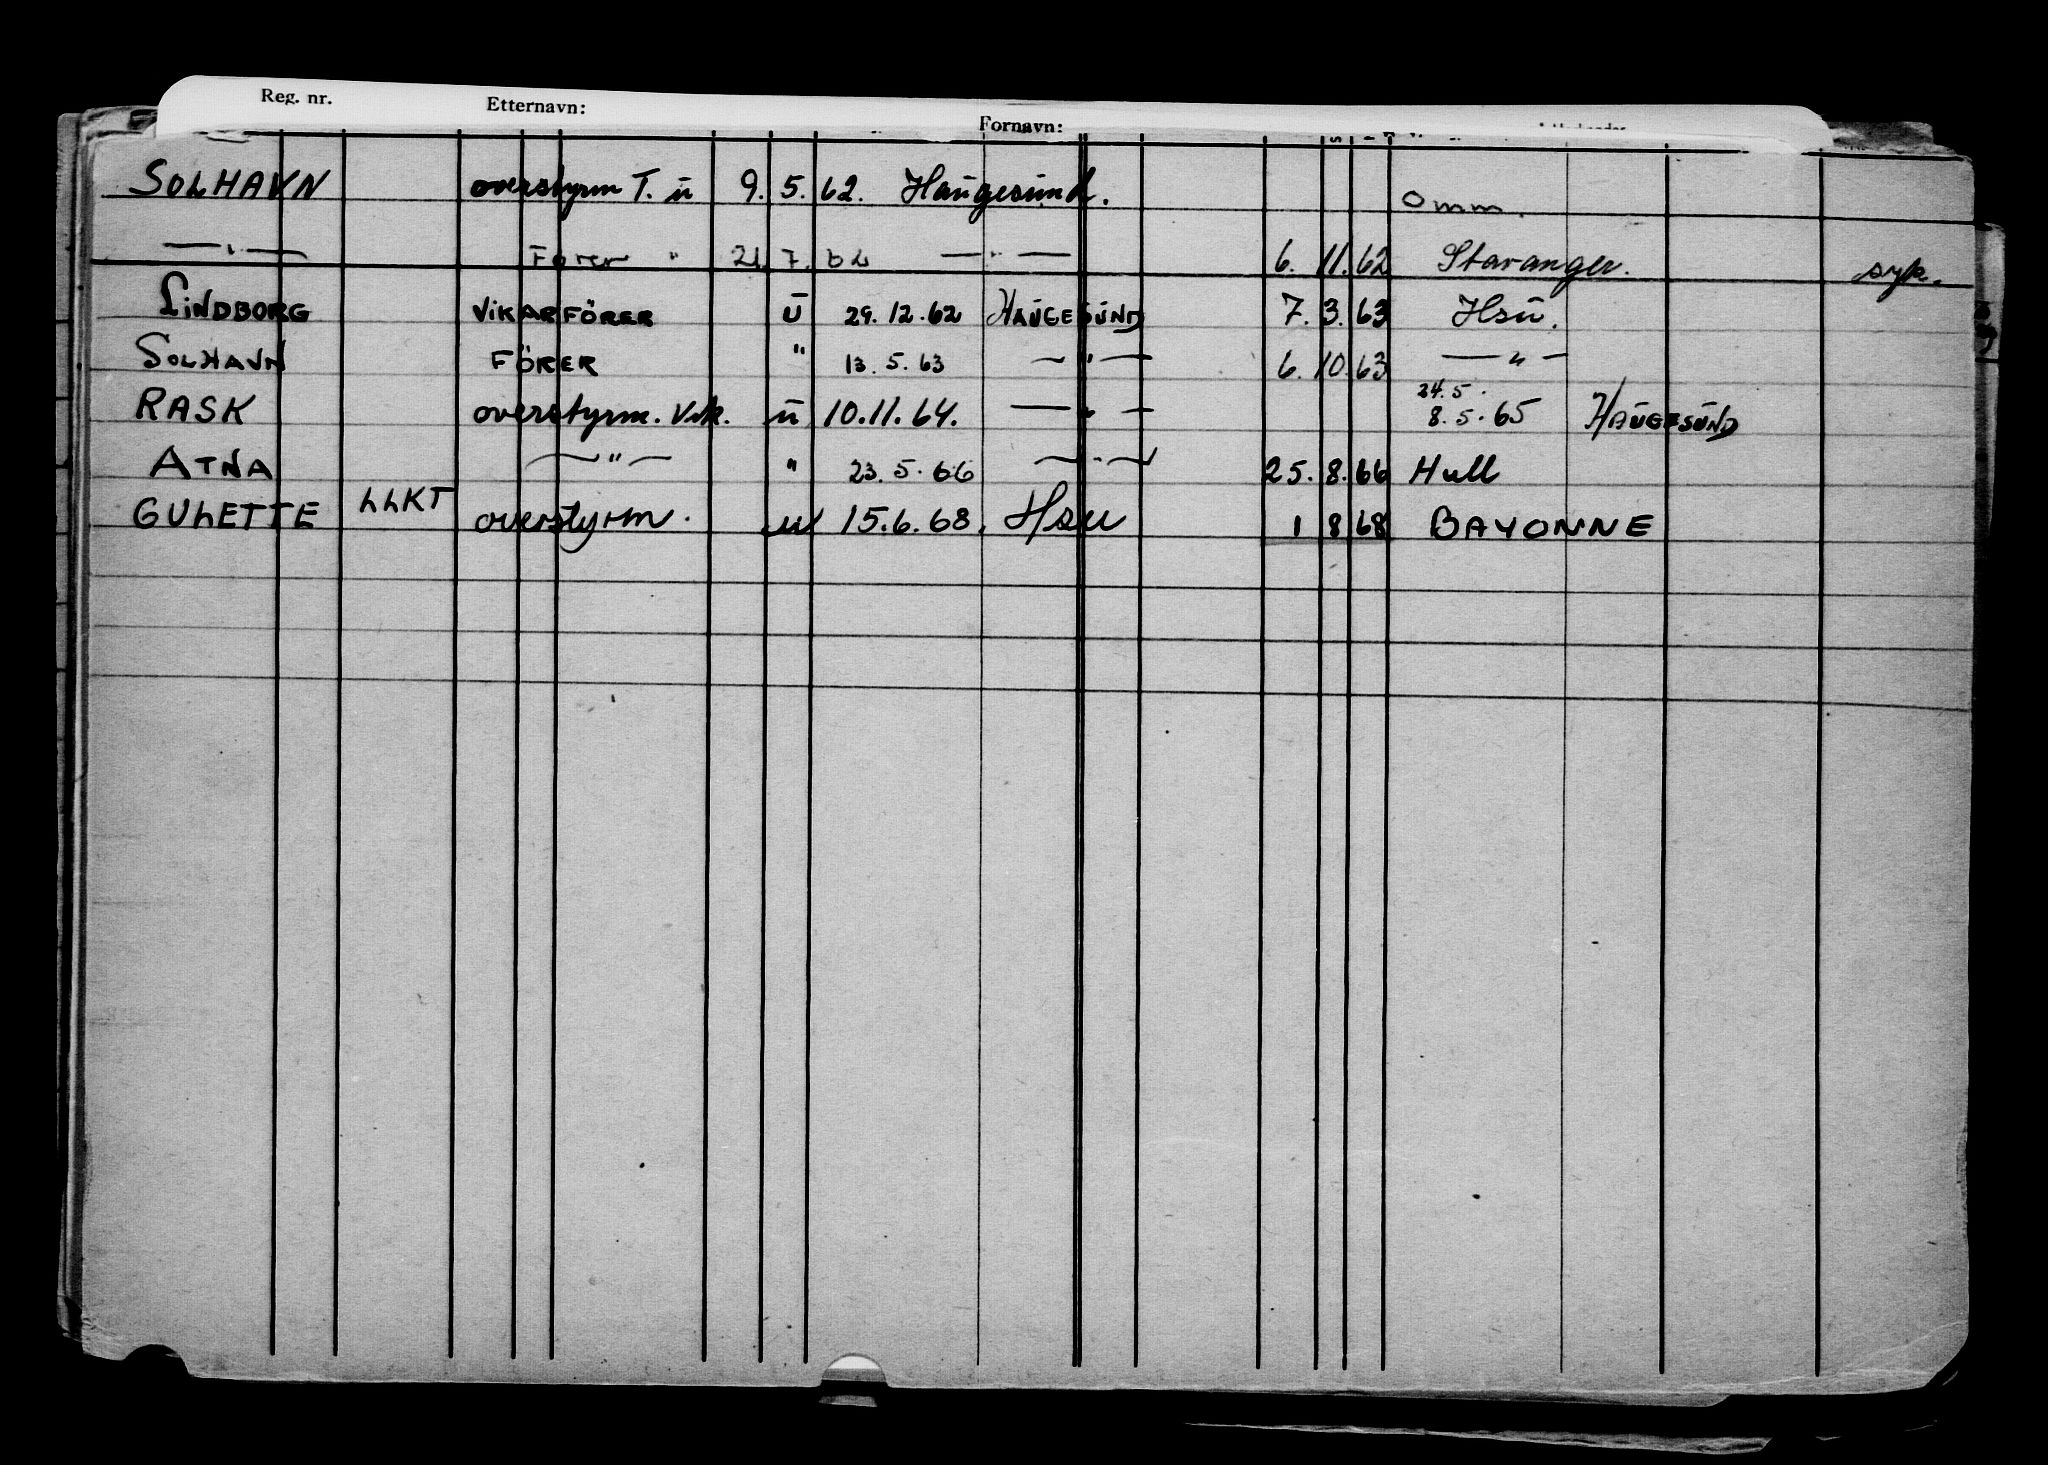 Reg. nr. Etternavn: Fornavn:
SOLHAVN overstyrm T. ū 9. 5. 62. Haugesund. Omm.
—"— Fører " 21. 7. 62 —"— 6. 11. 62 Stavanger. syk.
LINDBORG VIKARFÖRER ū 29. 12. 62 HAUGESUND 7. 3. 63 Hsū.
SOLHAVN FÖRER " 13. 5. 63 —"— 6. 10. 63 —"—
24. 5.
RASK overstyrm. Vik. ū 10. 11. 64. —"— 8. 5. 65 HAUGESUND
ATNA —"— " 23. 5. 66 —"— 25. 8. 66 Hull
GULETTE LLKT overstyrm. u 15. 6. 68. Hsu 1 8 68 BAYONNE